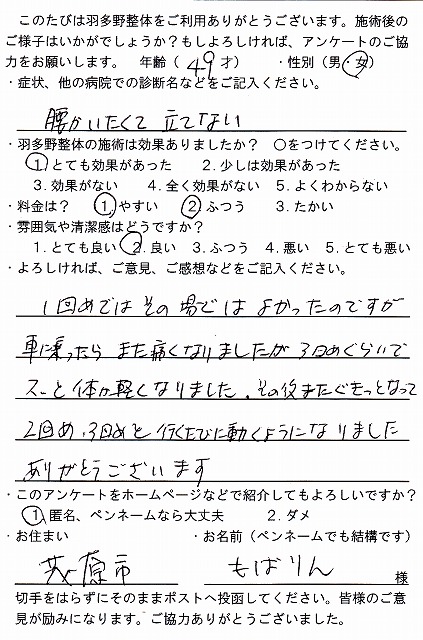 このたびは羽多野整体をご利用ありがとうございます。施術後の
ご様子はいかがでしょうか？もしよろしければ、アンケートのご協
力をお願いします。　年齢（ 49 才）　・性別（男・女）
・症状、他の病院での診断名などをご記入ください。
腰がいたくて 立てない
・羽多野整体の施術は効果ありましたか？　〇をつけてください。
1. とても効果があった　2. 少しは効果があった
3. 効果がない　4. 全く効果がない　5. よくわからない
・料金は？　1. やすい　2. ふつう　3. たかい
・雰囲気や清潔感はどうですか？
1. とても良い　2. 良い　3. ふつう　4. 悪い　5. とても悪い
・よろしければ、ご意見、ご感想などをご記入ください。
1回めではその場ではよかったのですが
車に乗ったら また痛くなりましたが 3日めぐらいで
スーと体が軽くなりました。その後またぐきっとなって
2回め、3回めと 行くたびに動くようになりました
ありがとうございます
・このアンケートをホームページなどで紹介してもよろしいですか？
1. 匿名、ペンネームなら大丈夫　2. ダメ
・お住まい　・お名前（ペンネームでも結構です）
茂原市　もばりん　様
切手をはらずにそのままポストへ投函してください。皆様のご意
見が励みになります。ご協力ありがとうございました。